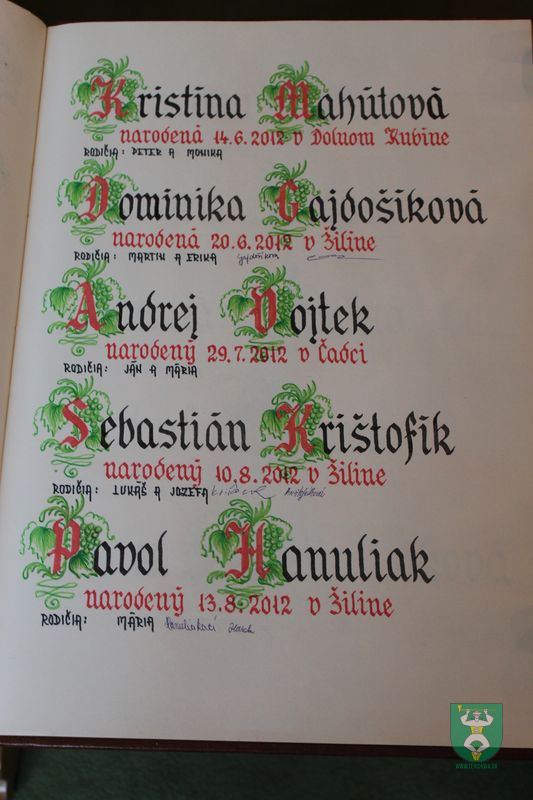 Kristína Mahútová
narodená 14.6.2012 v Dolnom Kubíne
RODIČIA: PETER A MONIKA
Dominika Gajdošíková
narodená 20.6.2012 v Žiline
RODIČIA: MARTIN A ERIKA Gajdošíková
Andrej Vojtek
narodený 29.7.2012 v Čadci
RODIČIA: JÁN A MÁRIA
Sebastián Krištofík
narodený 10.8.2012 v Žiline
RODIČIA: LUKÁŠ A JOZEFA
Pavol Hanuliak
narodený 13.8.2012 v Žiline
RODIČIA: MÁRIA